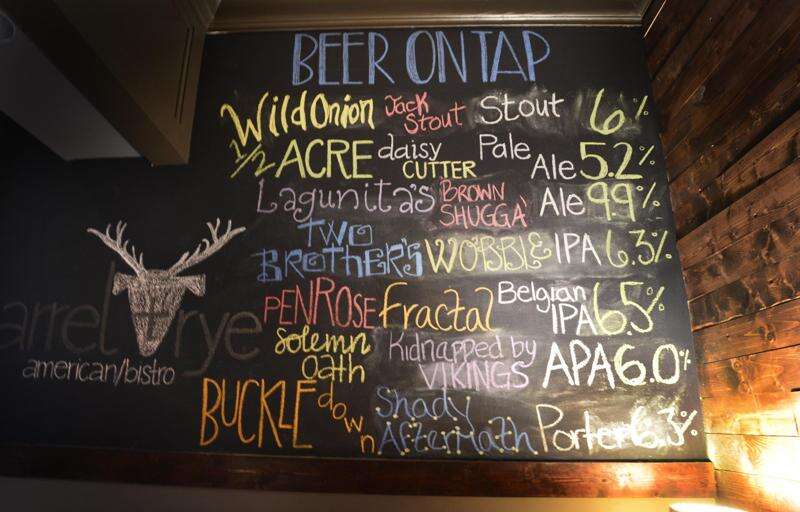 BEER ON TAP
Wild Onion Jack Stout Stout 6%
1/2 ACRE daisy CUTTER Pale Ale 5.2%
Lagunita's BROWN SHUGGA' Ale 9.9%
TWO BROTHER'S WOBBLE IPA 6.3%
PENROSE Fractal Belgian IPA 6.5%
solemn oath Kidnapped by VIKINGS APA 6.0%
BUCKLE down Shady Aftermath Porter 6.3%
arrel + rye
american/bistro